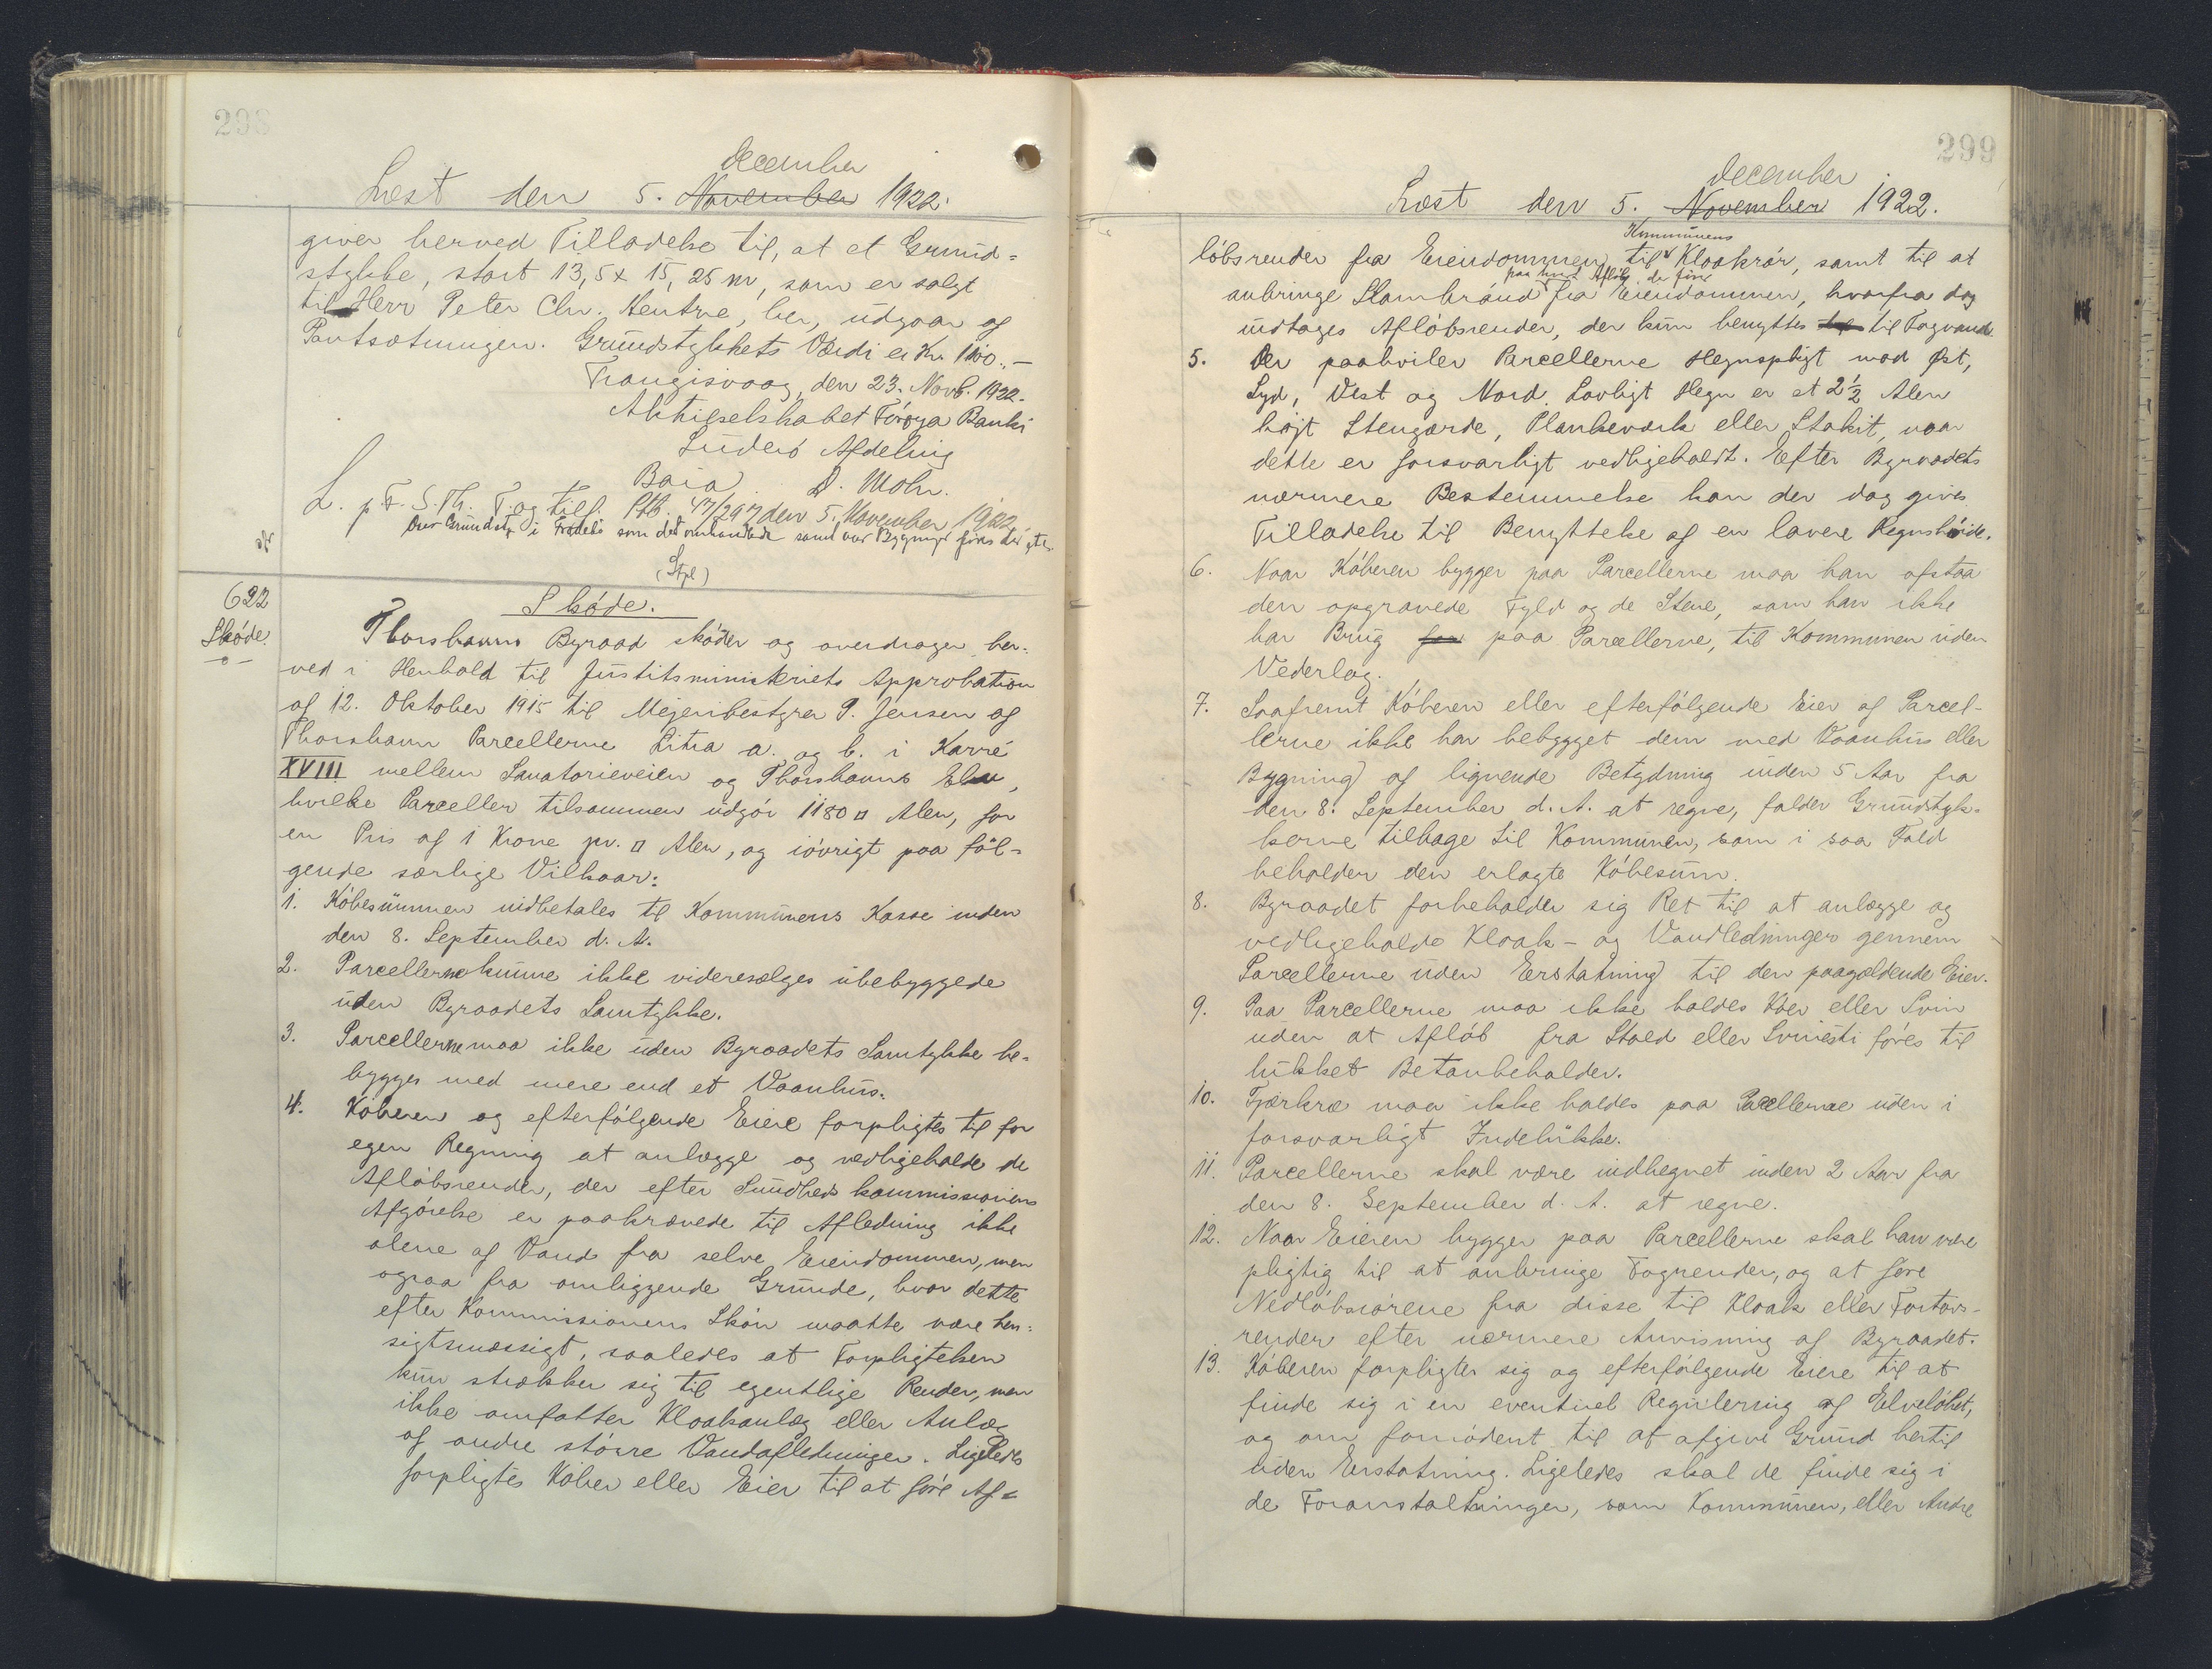 298
December
Læst den 5. November 1922.
giver herved Tilladelse til, at et Grund=
stykke, stort 13,5 x 15,25 m, som er solgt
til Herr Peter Chr. her, udgaar af
Pantsætningen. Grundstykkets Værdi er Kr. 1100.-
Trangisvaag, den 23. Novb. 1922.
Aktieselskabet Föroya Banki
Suderö Afdeling
D. Mohr.
L. p. F. S. Th. T. og tilf. Ptb. 47/297 den 5. November 1922.
i som det omhandlede samt
(Stpl)
622
Sköde.
-o-
Sköde.
Thorshavns Byraad sköder og overdrager her=
ved i Henhold til Justitsministeriets Approbation
af 12. Oktober 1915 til Mejeribestyrer P. Jensen af
Thorshavn Parcellerne Litra a. og b. i Karré
XVIII mellem Sanatorieveien og Thorshavns Elv,
hvilke Parceller tilsammen udgör 1180 □ Alen, for
en Pris af 1 Krone pr. □ Alen, og iövrigt paa föl=
gende særlige Vilkaar:
1. Köbesummen indbetales til Kommunens Kasse inden
den 8. September d. A.
2. Parcellerne kunne ikke videresælges ubebyggede
uden Byraadets Samtykke.
3. Parcellerne maa ikke uden Byraadets Samtykke be=
bygges med mere end et Vaanhus.
4. Köberen og efterfölgende Eiere forpligtes til for
egen Regning at anlægge og vedligeholde de
Aflöbsrender, der efter Sundhedskommissionens
Afgörelse er paakrævede til Afledning ikke
alene af Vand fra selve Eiendommen, men
ogsaa fra omliggende Grunde, hvor dette
efter Kommissionens Skön maatte være hen=
sigtsmæssigt, saaledes at Forpligtelsen
kun strækker sig til egentlige Render, men
ikke omfatter Kloakanlæg eller Anlæg
af andre större Vandafledninger. Ligeledes
forpligtes Köber eller Eier til at före Af=
299
December
Læst den 5. November 1922.
Kommunens
löbsrender fra Eiendommen til Kloakrör, samt til at
paa hvert Aflöb, der före
anbringe Slambrönd fra Eiendommen, hvorfra dog
undtages Aflöbsrender, der kun benyttes til til Tagvand.
5. Der paahviler Parcellerne Hegnspligt mod Øst,
Syd, Vest og Nord. Lovligt Hegn er et 2½ Alen
höjt Stengærde, Plankeværk eller Stakit, naar
dette er forsvarligt vedligeholdt. Efter Byraadets
nærmere Bestemmelse kan der dog gives
Tilladelse til Benyttelse af en lavere Hegnshöide.
6. Naar Köberen bygger paa Parcellerne maa han afstaa
den opgravede Fyld og de Stene, som han ikke
har Brug for paa Parcellerne, til Kommunen uden
Vederlag.
7. Saafremt Köberen eller efterfölgende Eier af Parcel-
lerne ikke har bebygget dem med Vaanhus eller
Bygning af lignende Betydning inden 5 Aar fra
den 8. September d. A. at regne, falder Grundstyk-
kerne tilbage til Kommunen, som i saa Fald
beholder den erlagte Köbesum.
8. Byraadet forbeholder sig Ret til at anlægge og
vedligeholde Kloak- og Vandledninger gennem
Parcellerne uden Erstatning til den paagældende Eier.
9. Paa Parcellerne maa ikke holdes Köer eller Svin
uden at Aflöb fra Stald eller Svinesti föres til
lukket Betonbeholder.
10. Fjærkræ maa ikke holdes paa Parcellerne uden i
forsvarligt Indelukke.
11. Parcellerne skal være indhegnet inden 2 Aar fra
den 8. September d. A. at regne.
12. Naar Eieren bygger paa Parcellerne skal han være
pligtig til at anbringe Tagrender, og at före
Nedlöbsrörene fra disse til Kloak eller Fortovs-
render efter nærmere Anvisning af Byraadet.
13. Köberen forpligter sig og efterfölgende Eiere til at
finde sig i en eventuel Regulering af Elvelöbet,
og om fornödent til at afgive Grund hertil
uden Erstatning. Ligeledes skal de finde sig i
de Foranstaltninger, som Kommunen, eller Andre